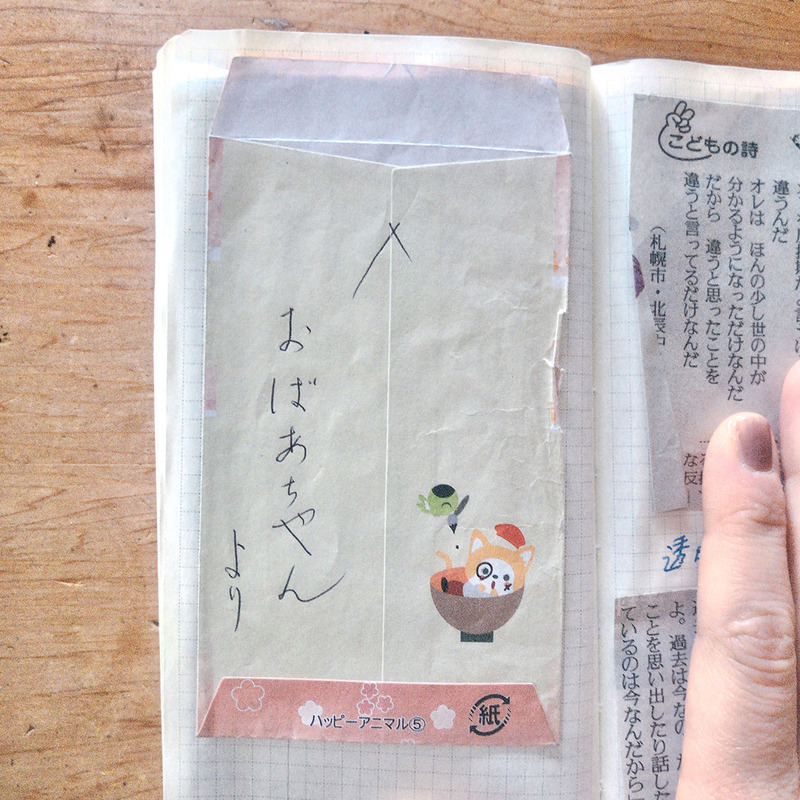 おばあちゃん
より
ハッピーアニマル⑤
紙
こどもの詩
違うんだ
オレは ほんの少し世の中が
分かるようになっただけなんだ
だから 違うと思ったことを
違うと言ってるだけなんだ
(札幌市・北辰中
な反
透
よ。過去は今なの
ことを思い出したり話した
ているのは今なんだから